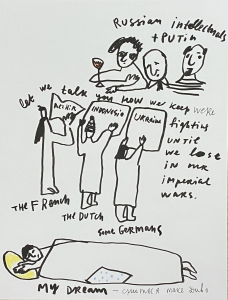 RUSSIAN intellectuals
+ PUTIN
let we talk you how we keep we're
fighting
UNTIL
we lose
in our
imperial
wars.
INDONESIA
UKRAINE
THE FRENCH
THE DUTCH
some GERMANS
MY DREAM –